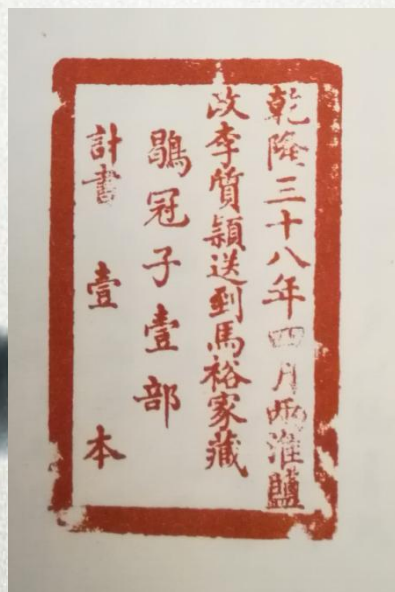 乾隆三十八年四月兩淮鹽
政李質頴送到馬裕家藏
鶡冠子壹部
計書壹本